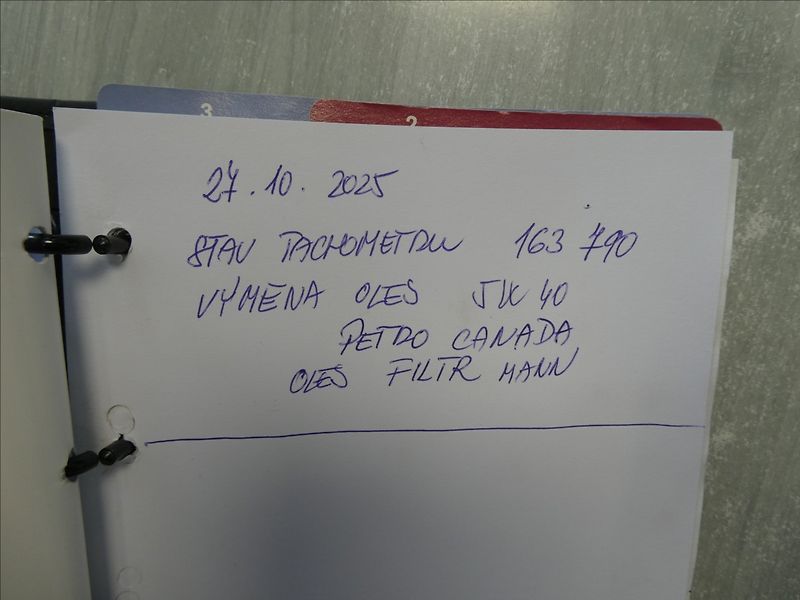 3
2
27.10. 2025
STAV TACHOMETRU 163 790
VÝMĚNA OLEJ 5W40
PETRO CANADA
OLEJ FILTR MANN